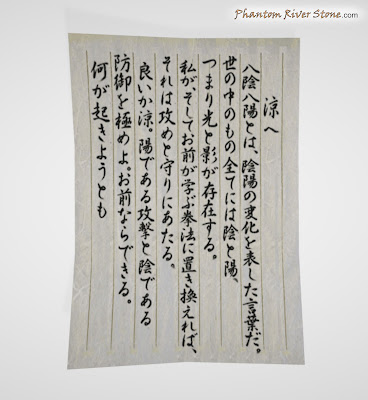 Phantom River Stone.com
涼へ
八陰八陽とは、陰陽の変化を表した言葉だ。
世の中のもの全てには陰と陽、
つまり光と影が存在する。
私が、そしてお前が学ぶ拳法に置き換えれば、
それは攻めと守りにあたる。
良いか涼。陽である攻撃と陰である
防御を極めよ。お前ならできる。
何が起きようとも